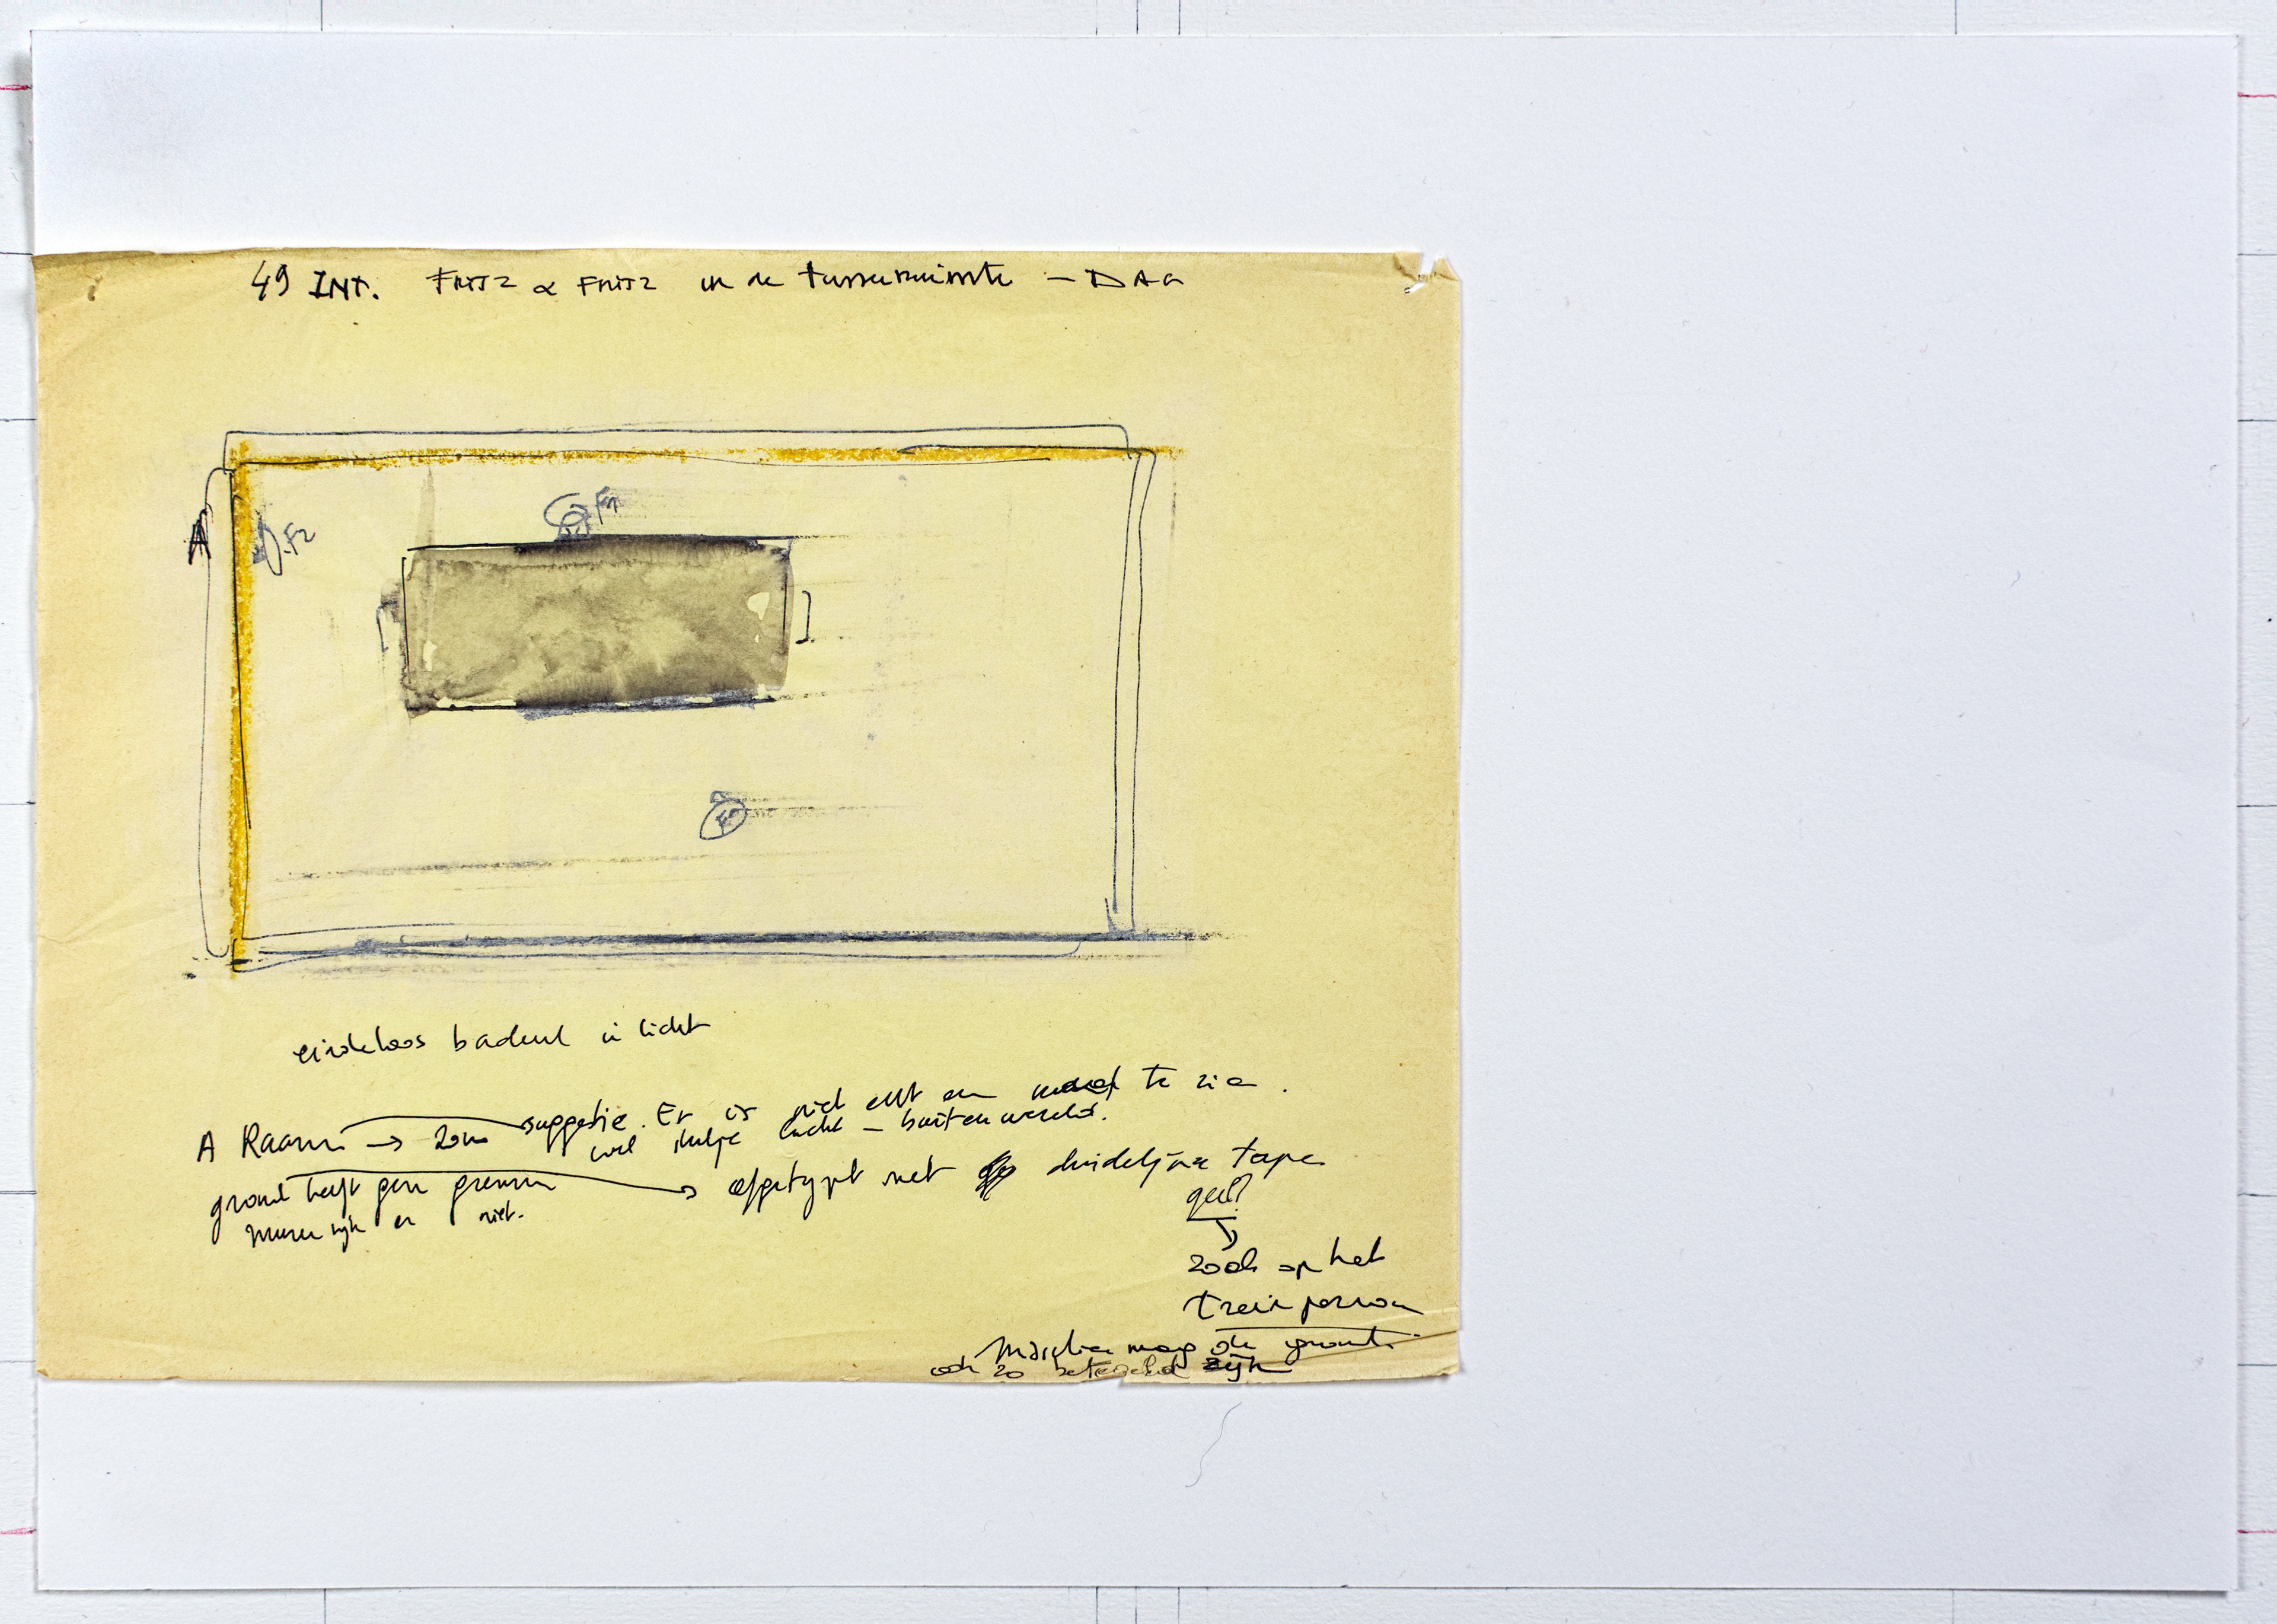 49 INT. FRITZ & FRITZ in de tussenruimte - DAG
F1
F2
A
eindeloos badend in licht
A Raam → zoon suggestie. Er is niet echt een te zien.
wel stukje lucht - buitenwereld.
grond heeft geen grenzen → afgetypt met duidelijke tape
muren zijn er niet.
geel?
zoals op het
trein perron
Misschien mag de grond
ook zo betegeld zijn